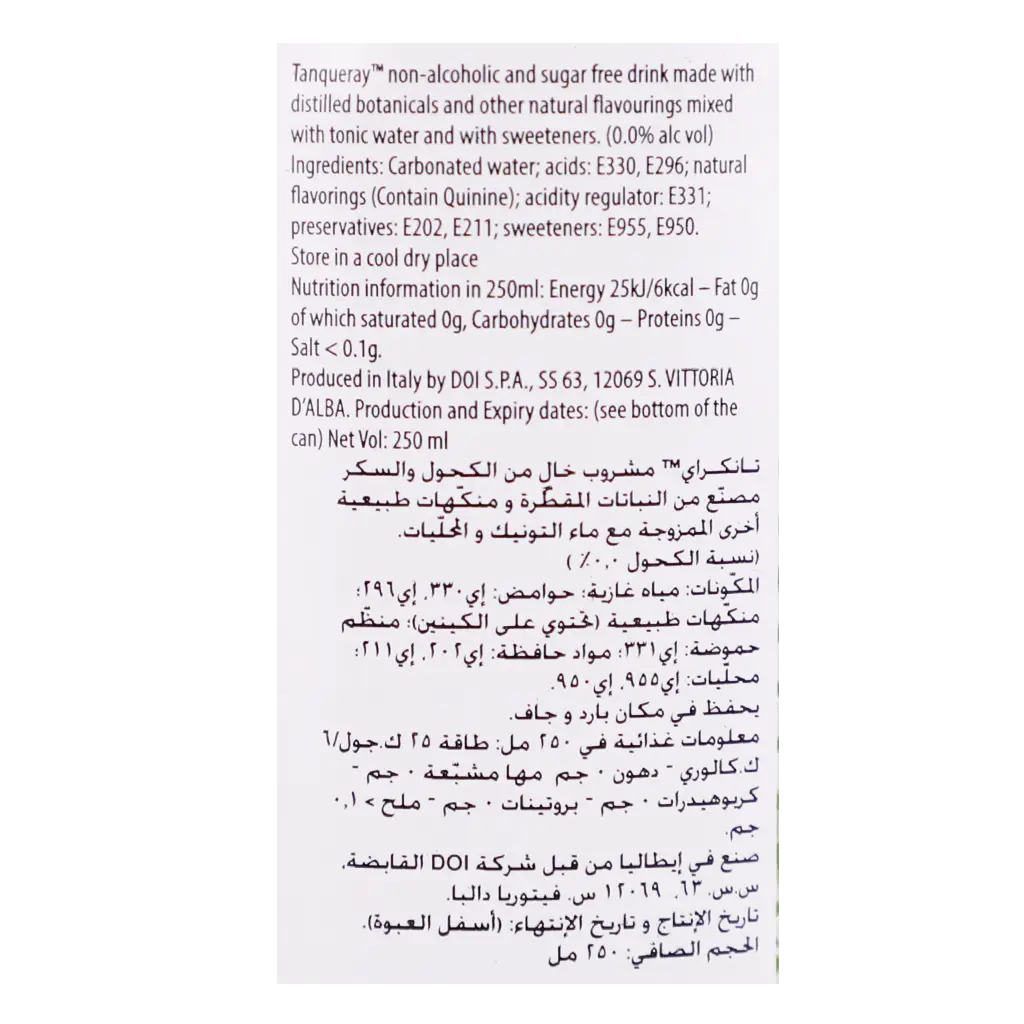 Tanqueray™ non-alcoholic and sugar free drink made with
distilled botanicals and other natural flavourings mixed
with tonic water and with sweeteners. (0.0% alc vol)
Ingredients: Carbonated water; acids: E330, E296; natural
flavorings (Contain Quinine); acidity regulator: E331;
preservatives: E202, E211; sweeteners: E955, E950.
Store in a cool dry place
Nutrition information in 250ml: Energy 25kJ/6kcal – Fat 0g
of which saturated 0g, Carbohydrates 0g – Proteins 0g –
Salt < 0.1g.
Produced in Italy by DOI S.P.A., SS 63, 12069 S. VITTORIA
D'ALBA. Production and Expiry dates: (see bottom of the
can) Net Vol: 250 ml
تانكراي™ مشروب خالٍ من الكحول والسكر
مصنّع من النباتات المقطّرة و منكّهات طبيعية
أخرى الممزوجة مع ماء التونيك و المحلّيات.
(نسبة الكحول ٠,٠٪ )
المكّونات: مياه غازية؛ حوامض: إي٣٣٠، إي٢٩٦؛
منكّهات طبيعية (تحتوي على الكينين)؛ منظّم
حموضة: إي٣٣١؛ مواد حافظة: إي٢٠٢، إي٢١١؛
محلّيات: إي٩٥٥، إي٩٥٠.
يحفظ في مكان بارد و جاف.
معلومات غذائية في ٢٥٠ مل: طاقة ٢٥ ك.جول/٦
ك.كالوري - دهون ٠ جم مها مشبّعة ٠ جم -
كربوهيدرات ٠ جم - بروتينات ٠ جم - ملح > ٠,١
جم.
صنع في إيطاليا من قبل شركة DOI القابضة،
س.س. ٦٣، ١٢٠٦٩ س. فيتوريا دالبا.
تاريخ الإنتاج و تاريخ الإنتهاء: (أسفل العبوة).
الحجم الصافي: ٢٥٠ مل